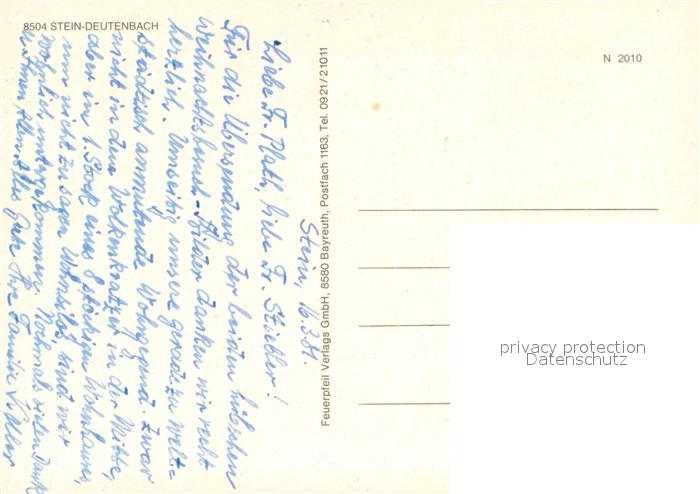 8504 STEIN-DEUTENBACH
N 2010
Stein, 16.3.81.
Liebe Fr. Plath, liebe Fr. Stiebler!
Für die Übersendung der beiden hübschen
Weihnachtsbaum-Bilder danken wir recht
herzlich. Umseitig unsere geradezu welt-
städtisch anmutende Wohngegend. Zwar
nicht in dem Wolkenkratzer in der Mitte,
aber im 1. Stock eines 8 stöckigen Wohnhauses,
um nicht zu sagen Wohnsilos, sind wir
wohnlich untergekommen. Nochmals vielen Dank
u. Ihnen Allen alles Gute Ihre Familie
Feuerpfeil Verlags GmbH, 8580 Bayreuth, Postfach 1163, Tel. 0921/21011
privacy protection
Datenschutz